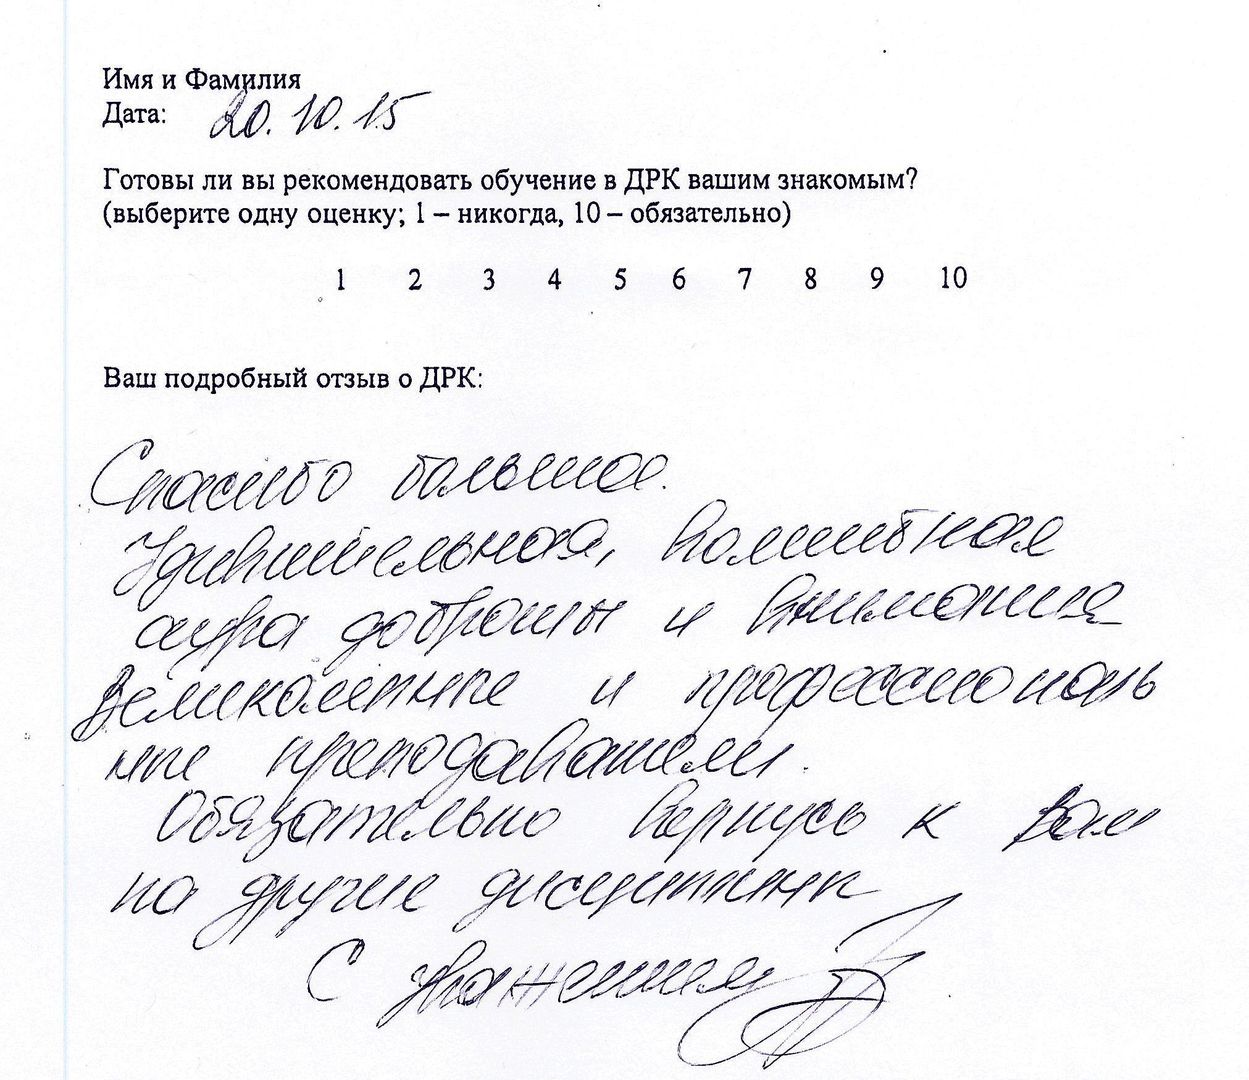 Имя и Фамилия
Дата: 20.10.15
Готовы ли вы рекомендовать обучение в ДРК вашим знакомым?
(выберите одну оценку; 1 – никогда, 10 – обязательно)
1 2 3 4 5 6 7 8 9 10
Ваш подробный отзыв о ДРК:
Спасибо большое.
Удивительная, волшебная
аура доброты и внимания
Великолепные и профессиональ
ные преподаватели.
Обязательно вернусь к вам
на другие дисциплины
С уважением